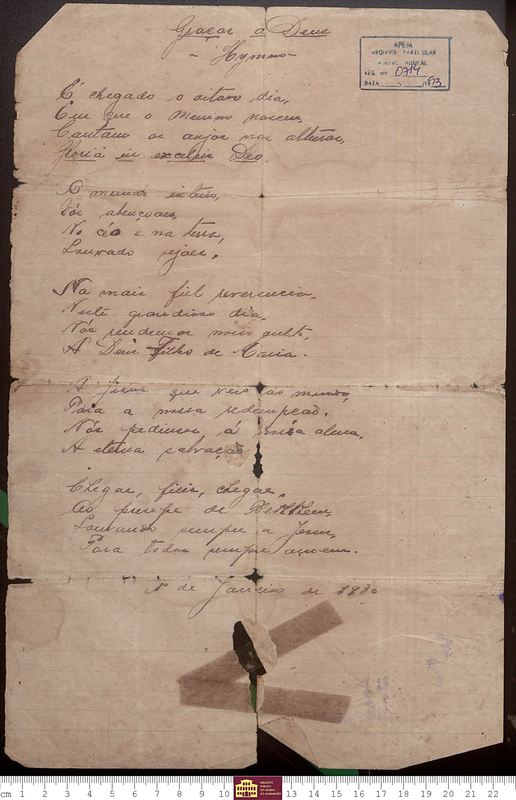 Graças a Deus
- Hymno -
APEM
ARQUIVO PARTICULAR
ACERVO MUSICAL
REG. Nº 0714
DATA
É chegado o oitavo dia,
Em que o Menino nasceu,
Cantam os anjos nas alturas,
Gloria in excelsis Deo.
O mundo inteiro,
Vós abençoaes,
No céo e na terra,
Louvado sejaes.
Na mais fiel reverencia,
Neste grandioso dia,
Nós rendemos nosso culto,
A Deus Filho de Maria.
A Jesus que veio ao mundo,
Para a nossa redempção.
Nós pedimos á nossa alma,
A eterna salvação
Chegae, fieis, chegae,
Ao presepe de Bethlem,
Louvando sempre a Jesus,
Para todos sempre amem.
1º de Janeiro de
cm 1 2 3 4 5 6 7 8 9 10 13 14 15 16 17 18 19 20 21 22
ARQUIVO
PÚBLICO
DO ESTADO
DO MARANHÃO